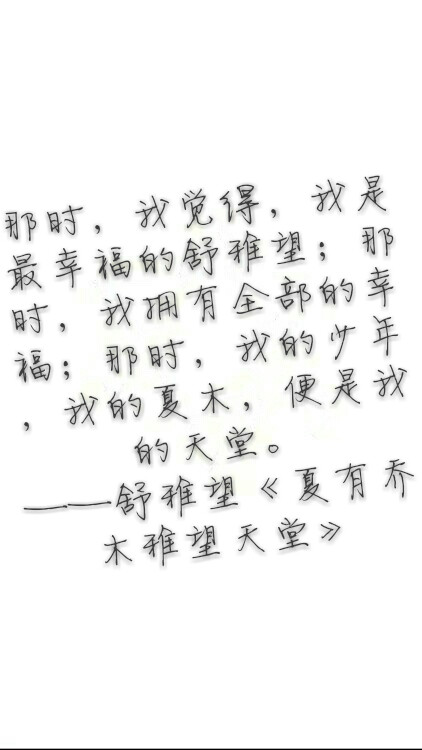 那时，我觉得，我是
最幸福的舒雅望；那
时，我拥有全部的幸
福；那时，我的少年
，我的夏木，便是我
的天堂。
——舒雅望《夏有乔
木雅望天堂》